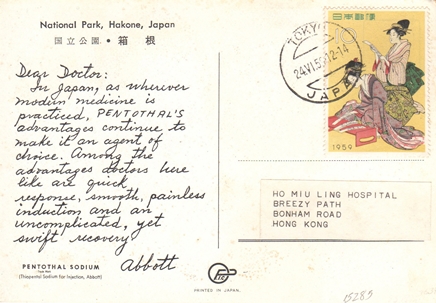 National Park, Hakone, Japan
国立公園・箱根
Dear Doctor:
In Japan, as wherever
modern medicine is
practiced, PENTOTHAL'S
advantages continue to
make it an agent of
choice. Among the
advantages doctors here
like are quick
response, smooth, painless
induction and an
uncomplicated, yet
swift recovery
Abbott
PENTOTHAL SODIUM
(Thiopental Sodium for Injection, Abbott)
PRINTED IN JAPAN.
TOKYO
24.VI.59 12-14
JAPAN
日本郵便
10
1959
HO MIU LING HOSPITAL
BREEZY PATH
BONHAM ROAD
HONG KONG
15285